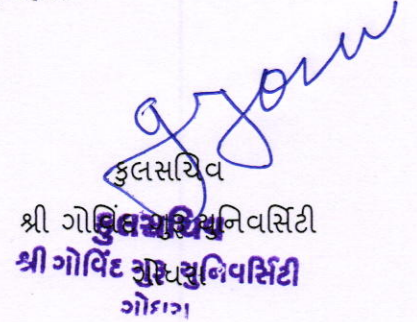 કુલસચિવ
શ્રી ગોવિંદ ગુરુ યુનિવર્સિટી
કુલસચિવ
શ્રી ગોવિંદ ગુરુ યુનિવર્સિટી
ગોધરા
ગોધરા